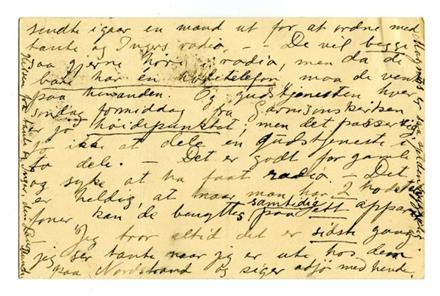 sendte igaar en mand ut for at ordne med
tante og Ingers radio. – De vil begge
saa gjerne høre radio, men da de
bare har én hodetelefon, maa de vente
paa hinanden. Og gudstjenesten hver
søndag formiddag fra Garnisonskirken
er jo høidepunktet, men det passer sig
jo ikke at dele en gudstjeneste i
to dele. – Det er godt for gamle
og syke at ha faat radio – Det
er heldig at naar man har 2 hodetele-
foner kan de benyttes samtidig paa ett apparat.
Jeg tror altid det er sidste gang
jeg ser tante naar jeg er ute hos dem
paa Nordstrand og siger adjø med hende.
Hilsen fra tante og Inger